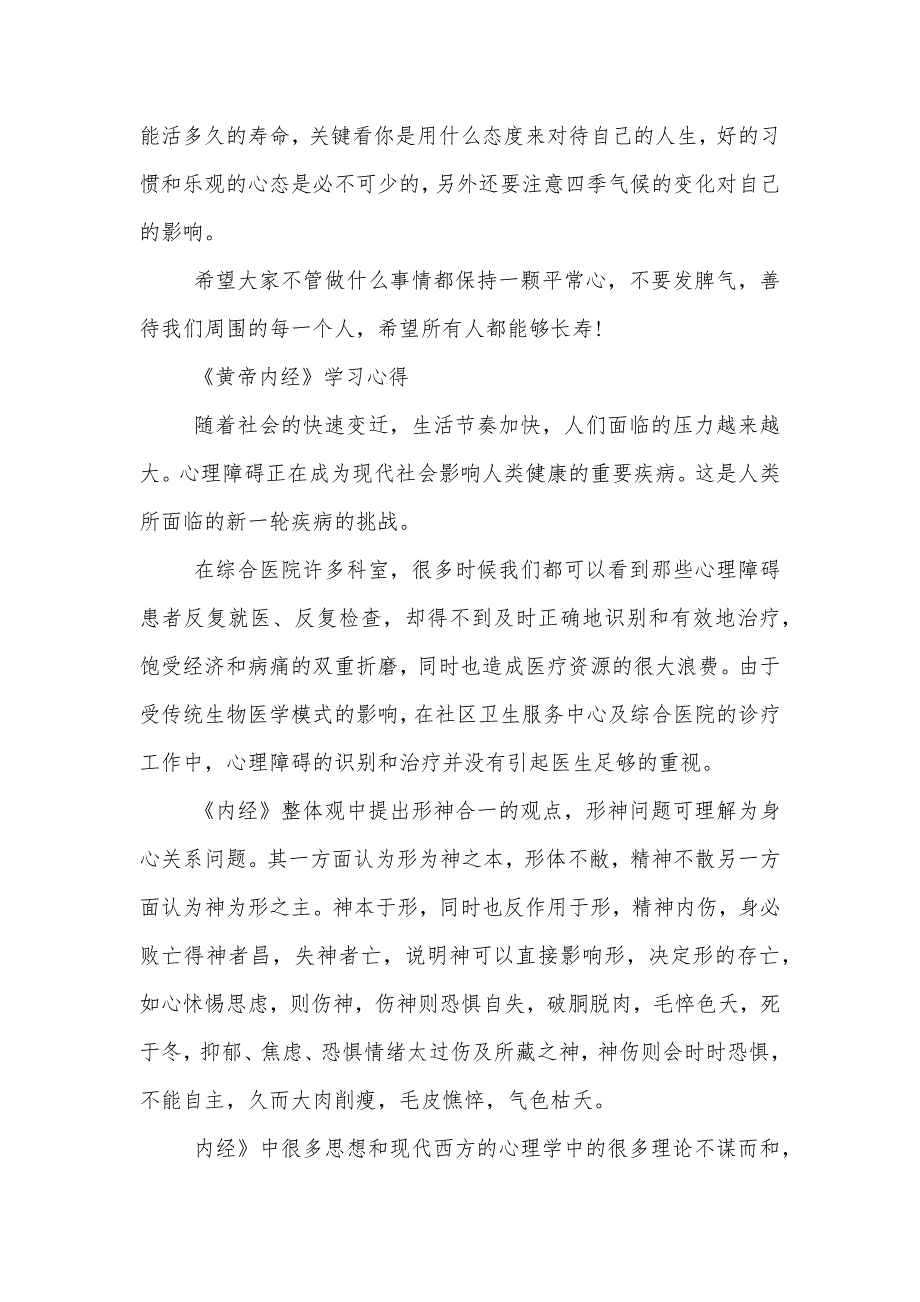 能活多久的寿命，关键看你是用什么态度来对待自己的人生，好的习
惯和乐观的心态是必不可少的，另外还要注意四季气候的变化对自己
的影响。
希望大家不管做什么事情都保持一颗平常心，不要发脾气，善
待我们周围的每一个人，希望所有人都能够长寿!
《黄帝内经》学习心得
随着社会的快速变迁，生活节奏加快，人们面临的压力越来越
大。心理障碍正在成为现代社会影响人类健康的重要疾病。这是人类
所面临的新一轮疾病的挑战。
在综合医院许多科室，很多时候我们都可以看到那些心理障碍
患者反复就医、反复检查，却得不到及时正确地识别和有效地治疗，
饱受经济和病痛的双重折磨，同时也造成医疗资源的很大浪费。由于
受传统生物医学模式的影响，在社区卫生服务中心及综合医院的诊疗
工作中，心理障碍的识别和治疗并没有引起医生足够的重视。
《内经》整体观中提出形神合一的观点，形神问题可理解为身
心关系问题。其一方面认为形为神之本，形体不敝，精神不散另一方
面认为神为形之主。神本于形，同时也反作用于形，精神内伤，身必
败亡得神者昌，失神者亡，说明神可以直接影响形，决定形的存亡，
如心怵惕思虑，则伤神，伤神则恐惧自失，破胭脱肉，毛悴色夭，死
于冬，抑郁、焦虑、恐惧情绪太过伤及所藏之神，神伤则会时时恐惧，
不能自主，久而大肉削瘦，毛皮憔悴，气色枯夭。
内经》中很多思想和现代西方的心理学中的很多理论不谋而和，